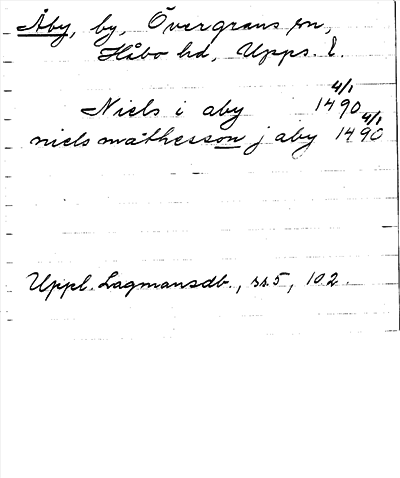 Åby, by, Övergrans sn,
Håbo hd, Upps. l.
4/1
Niels i aby 1490
4/1
niels mathesson j aby 1490
Uppl. Lagmansdb., ss. 5, 102.